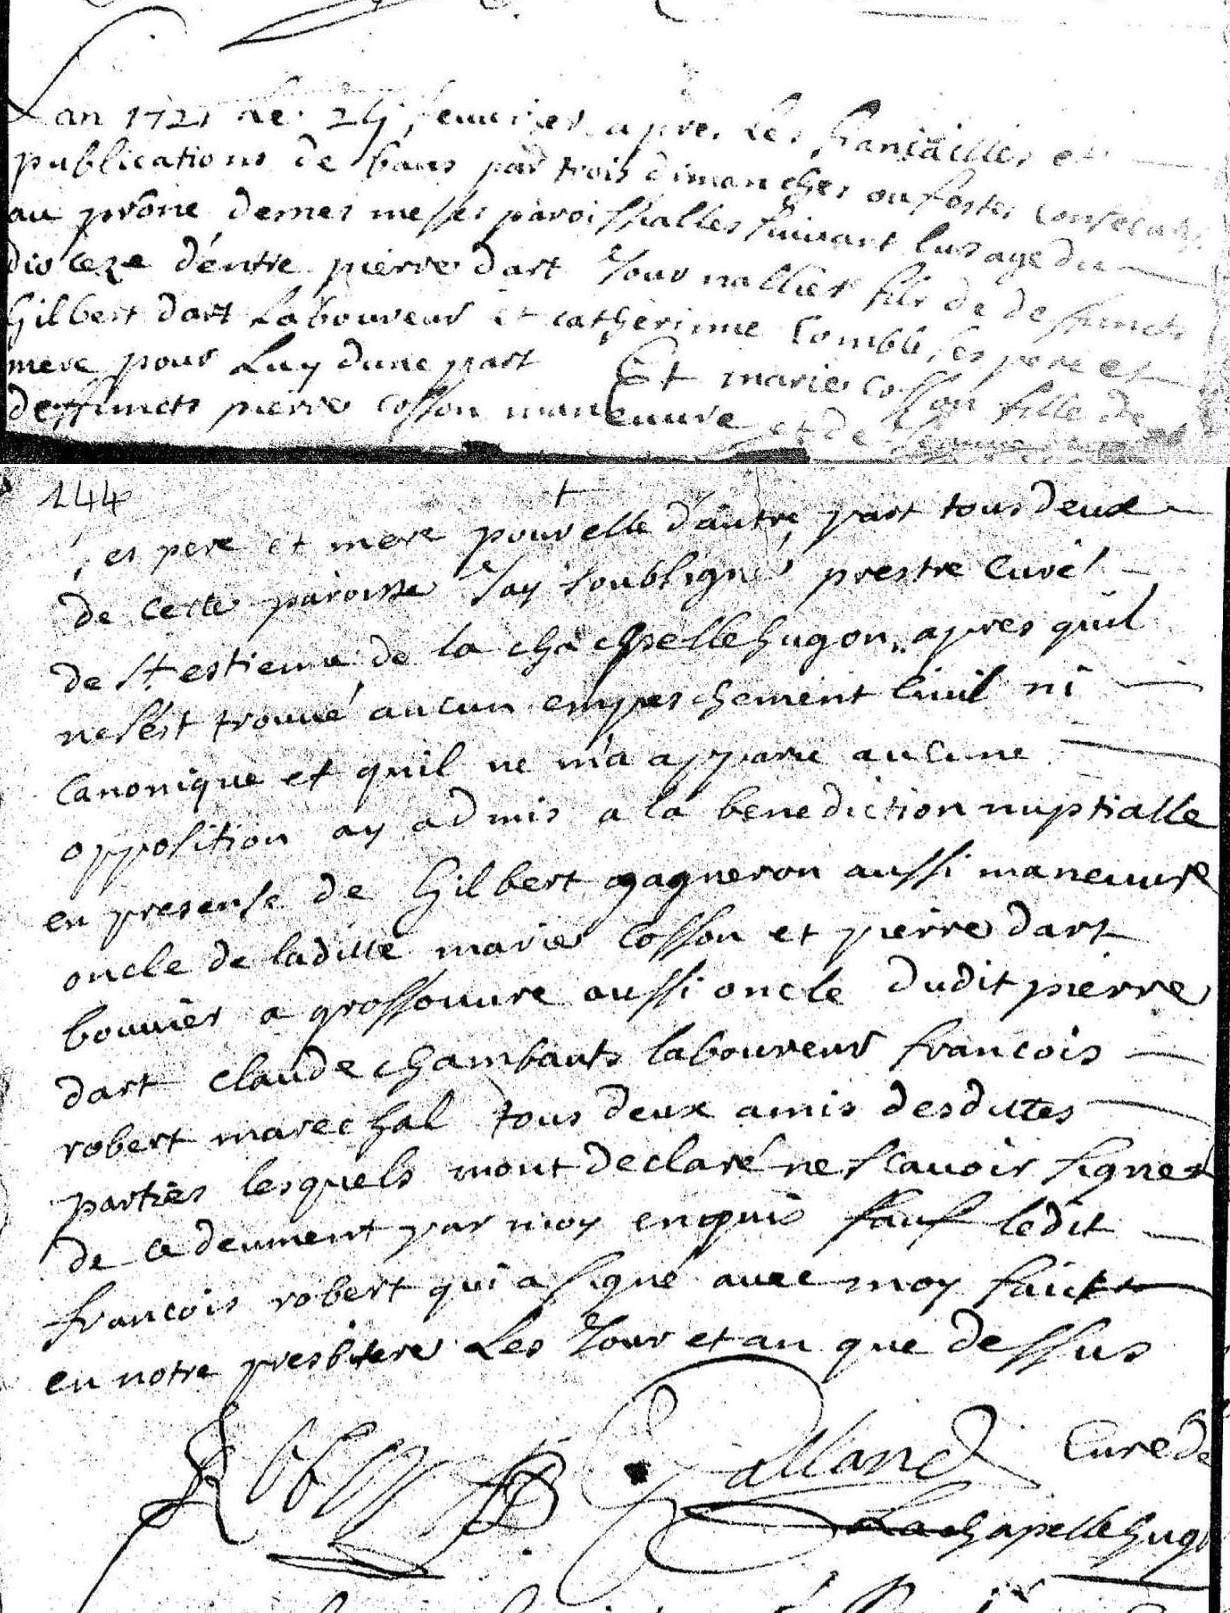 Lan 1721 le 24 feuurier apres les fiansailles et
publications de bans par trois dimanches ou festes consecutifs
au prône de mes messes paroissialles suiuant lusage du
dioceze d'entre pierre dart Journallier fils de deffuncts
Gilbert dart Laboureur et catherinne Comble ses pere et
mere pour Luy dune part Et marie cosson fille de
deffuncts pierre cosson maneuuure et de
144
ses pere et mere pour elle d'autre part tous deux
de cette paroisse Jay soubsigné prestre Curé
de St estienne de la chachpelle hugon apres quil
ne sest trouué aucun empeschement Ciuil ni
Canonique et quil ne m'a apparu aucune
opposition ay admis a la benediction nuptialle
en presense de Gilbert gagneron aussi maneuure
oncle de laditte marie Cosson et pierre dart
bouuier a grossouure aussi oncle dudit pierre
dart claude chambauts laboureur francois
robert marechal tous deux amis desdittes
parties lesquels mont declaré ne scauoir signer
de ce deument par moy enquis sauf ledit
francois robert qui a signé auec moy faict
en notre presbitere Les Jour et an que dessus
Robert Galland Curé de
Lachapelle hugo